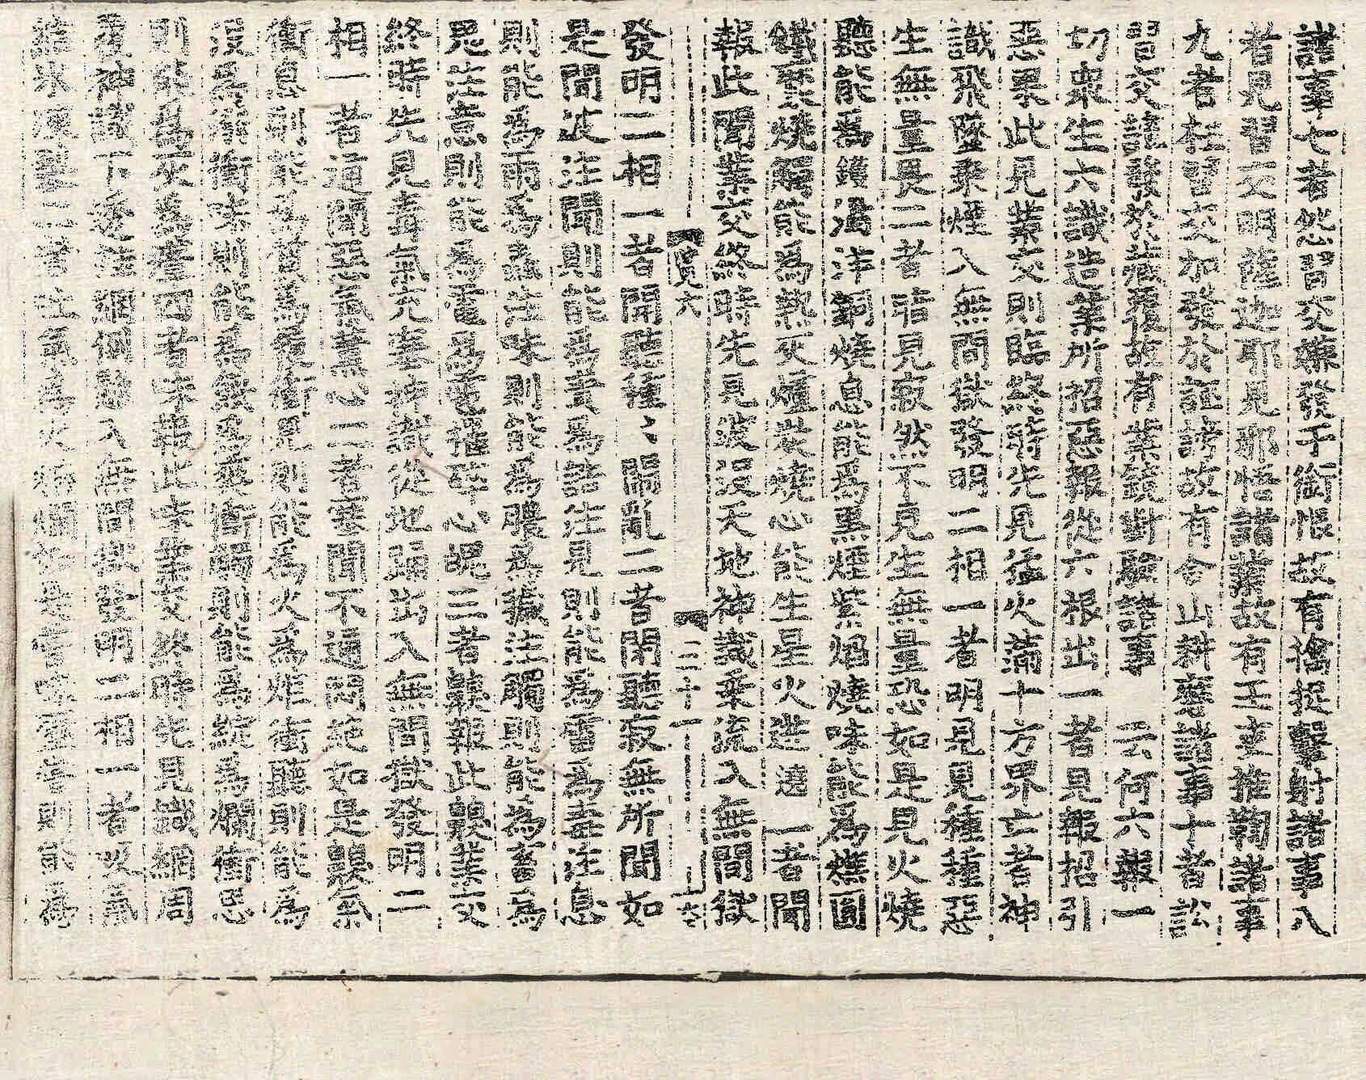 諸事七者怨習交嫌發于銜恨故有擔捉擊射諸事八
者見習交明薩迦耶見邪悟諸業故有王吏推鞫諸事
九者枉習交加發於誣謗故有合山耕磨諸事十者訟
習交諠發於藏覆故有業鏡對驗諸事 云何六報一
切衆生六識造業所招惡報從六根出一者見報招引
惡果此見業交則臨終時先見猛火滿十方界亡者神
識飛墜乘煙入無間獄發明二相一者明見見種種惡
生無量畏二者暗見寂然不見生無量恐如是見火燒
聽能為鑊湯洋銅燒息能為黒煙紫焰燒味能為燋圓
鐵糜燒觸能為熱灰爐炭燒心能生星火迸遶 一者聞
報此聞業交終時先見波没天地神識乘流入無間獄
六 三十一
發明二相一者開聽種〻鬧亂二者閉聽寂無所聞如
是聞波注聞則能為責為詰注見則能為雷為毒注息
則能為雨為霧注味則能為膿為穢注觸則能為畜為
思注意則能為電為雹摧碎心魄三者齅報此齅業交
終時先見毒氣充塞神識從地踊出入無間獄發明二
相一者通聞惡氣薰心二者塞聞不通悶絶如是齅氣
衝息則能為質為履衝見則能為火為炬衝聽則能為
没為衝味則能為餒為爽衝觸則能為綻為爛衝思
則能為灰為瘴四者味報此味業交終時先見鐵網周
覆神識下透挂網倒懸入無間獄發明二相一者吸氣
結氷凍裂二者吐氣為火燋爛嘗味則能為